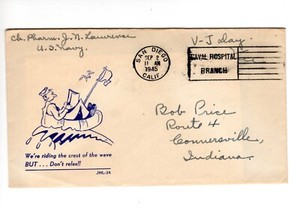 Ch. Pharm. J. N. Lawrence
U.S. Navy
V-J Day.
SAN DIEGO
SEP 2
11 AM
1945
CALIF.
NAVAL HOSPITAL
BRANCH
Bob Price
Route 4
Connersville,
Indiana.
We're riding the crest of the wave
BUT . . . Don't relax!!
JHL-24